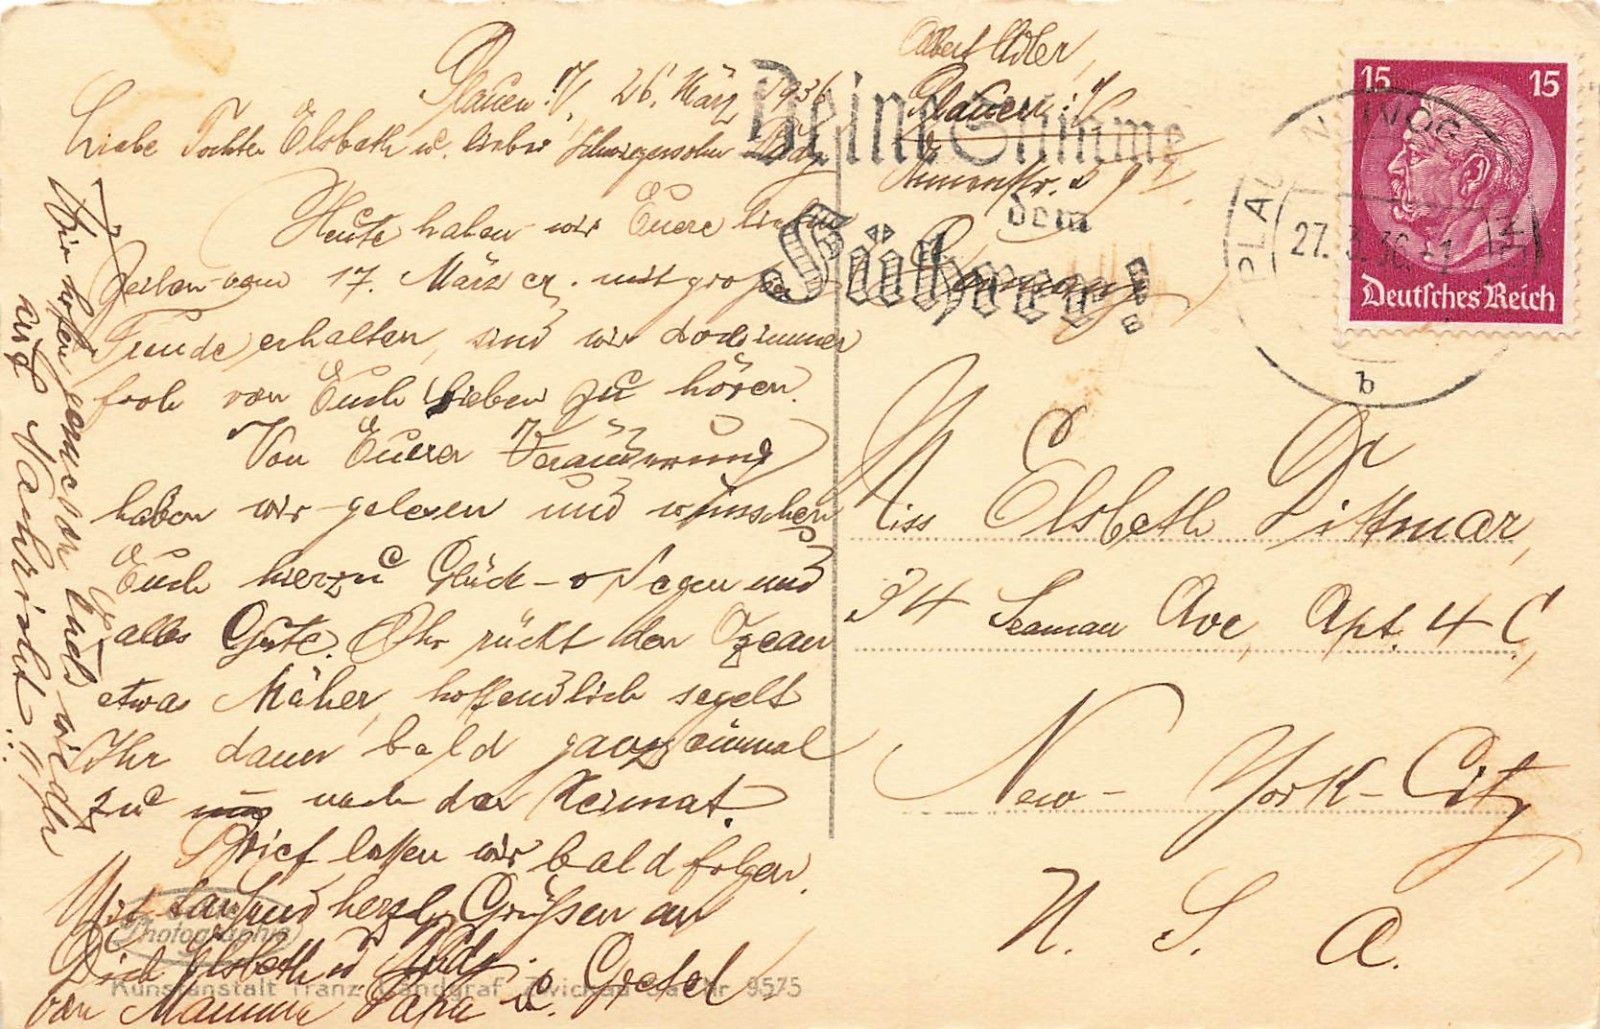 Plauen i/V, 26. März 1936
Liebe Tochter Elsbeth u. lieber Schwigersohn
Heute haben wir Euere lieben
Zeilen vom 17. März cr. mit großer
Freude erhalten, sind wir doch immer
froh von Euch Lieben zu hören.
Von Euerer Veränderung
haben wir gelesen und wünschen
Euch hierzu Glück- u Segen und
alles Gute. Ihr rückt den Ozean
etwas Näher, hoffendlich segelt
Ihr dann bald ganz einmal
zu nach der Heimat.
Brief lassen wir bald folgen.
Mit tausend herzl. Grüßen an
Dich Elsbeth u
von Mamma Papa u. Gretel
Wir hoffen gerne von Euch wieder
auf Nachricht!!
Photographie
Kunstanstalt Franz Landgraf, Zwickau Sa. Nr 9575
Albert Adler,
Plauen i/V
29
Germany
Deine Stimme
dem
Führer!
PLAUEN (VOGTL)
27.3.36.-1
b
15 15
Deutsches Reich
Miss Elsbeth Dr Dittmar,
94 Seaman Ave, Apt. 4 C,
New-York-City
U. S. A.